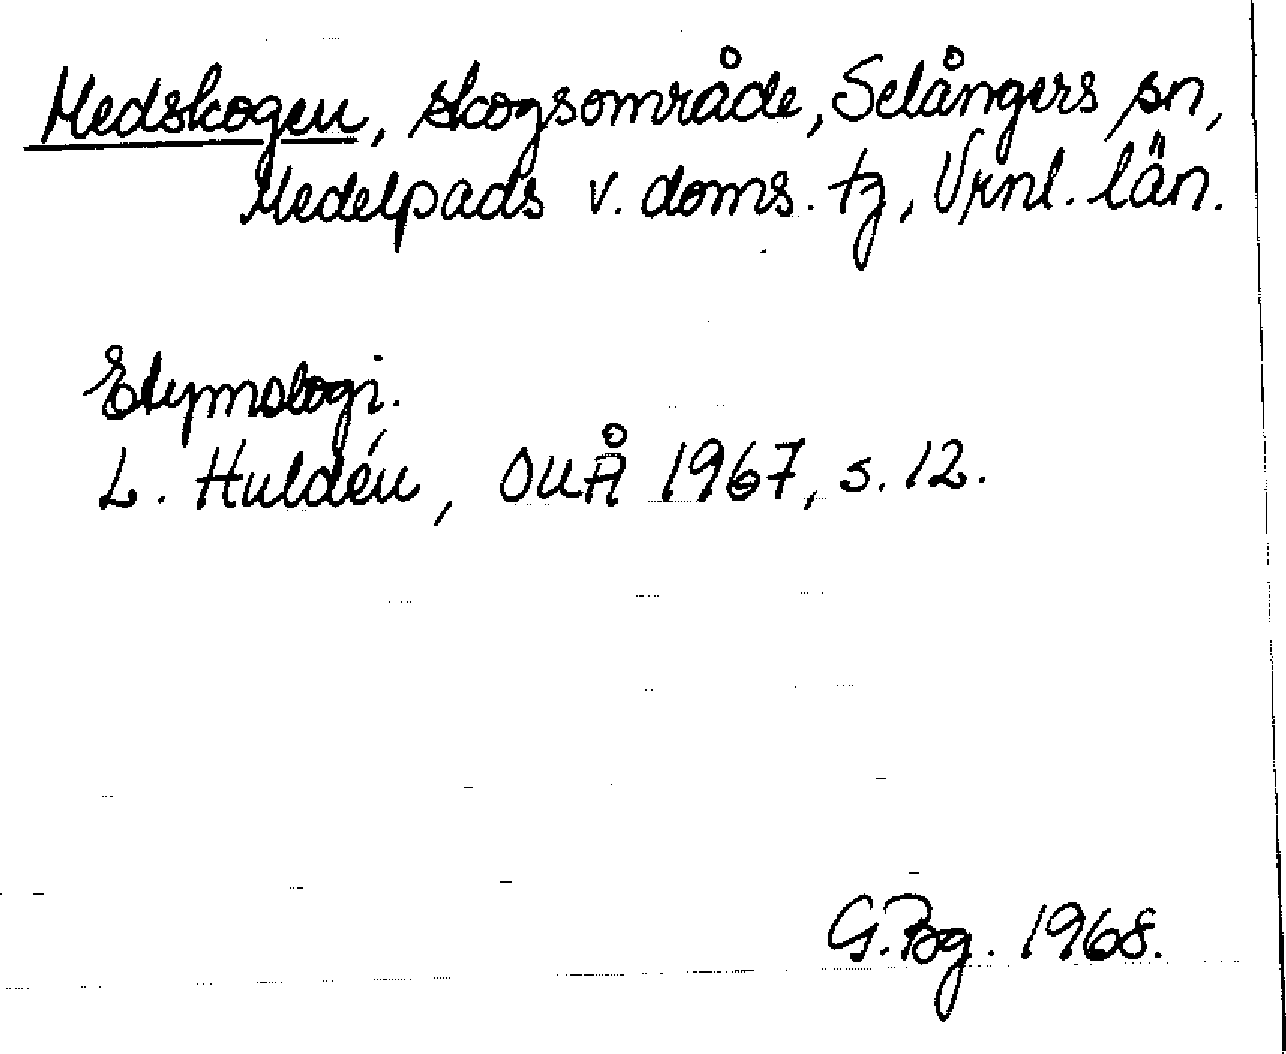 Medskogen, skogsområde, Selångers sn,
Medelpads v. doms. tg, Vrnl. län.
Etymologi.
L. Huldén, OUÅ 1967, s. 12.
G. Bg. 1968.